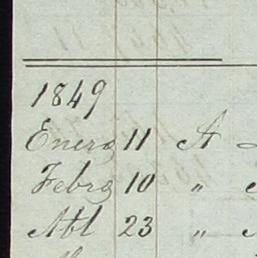 1849
Enero 11 A
Febro 10 "
Abl 23 "